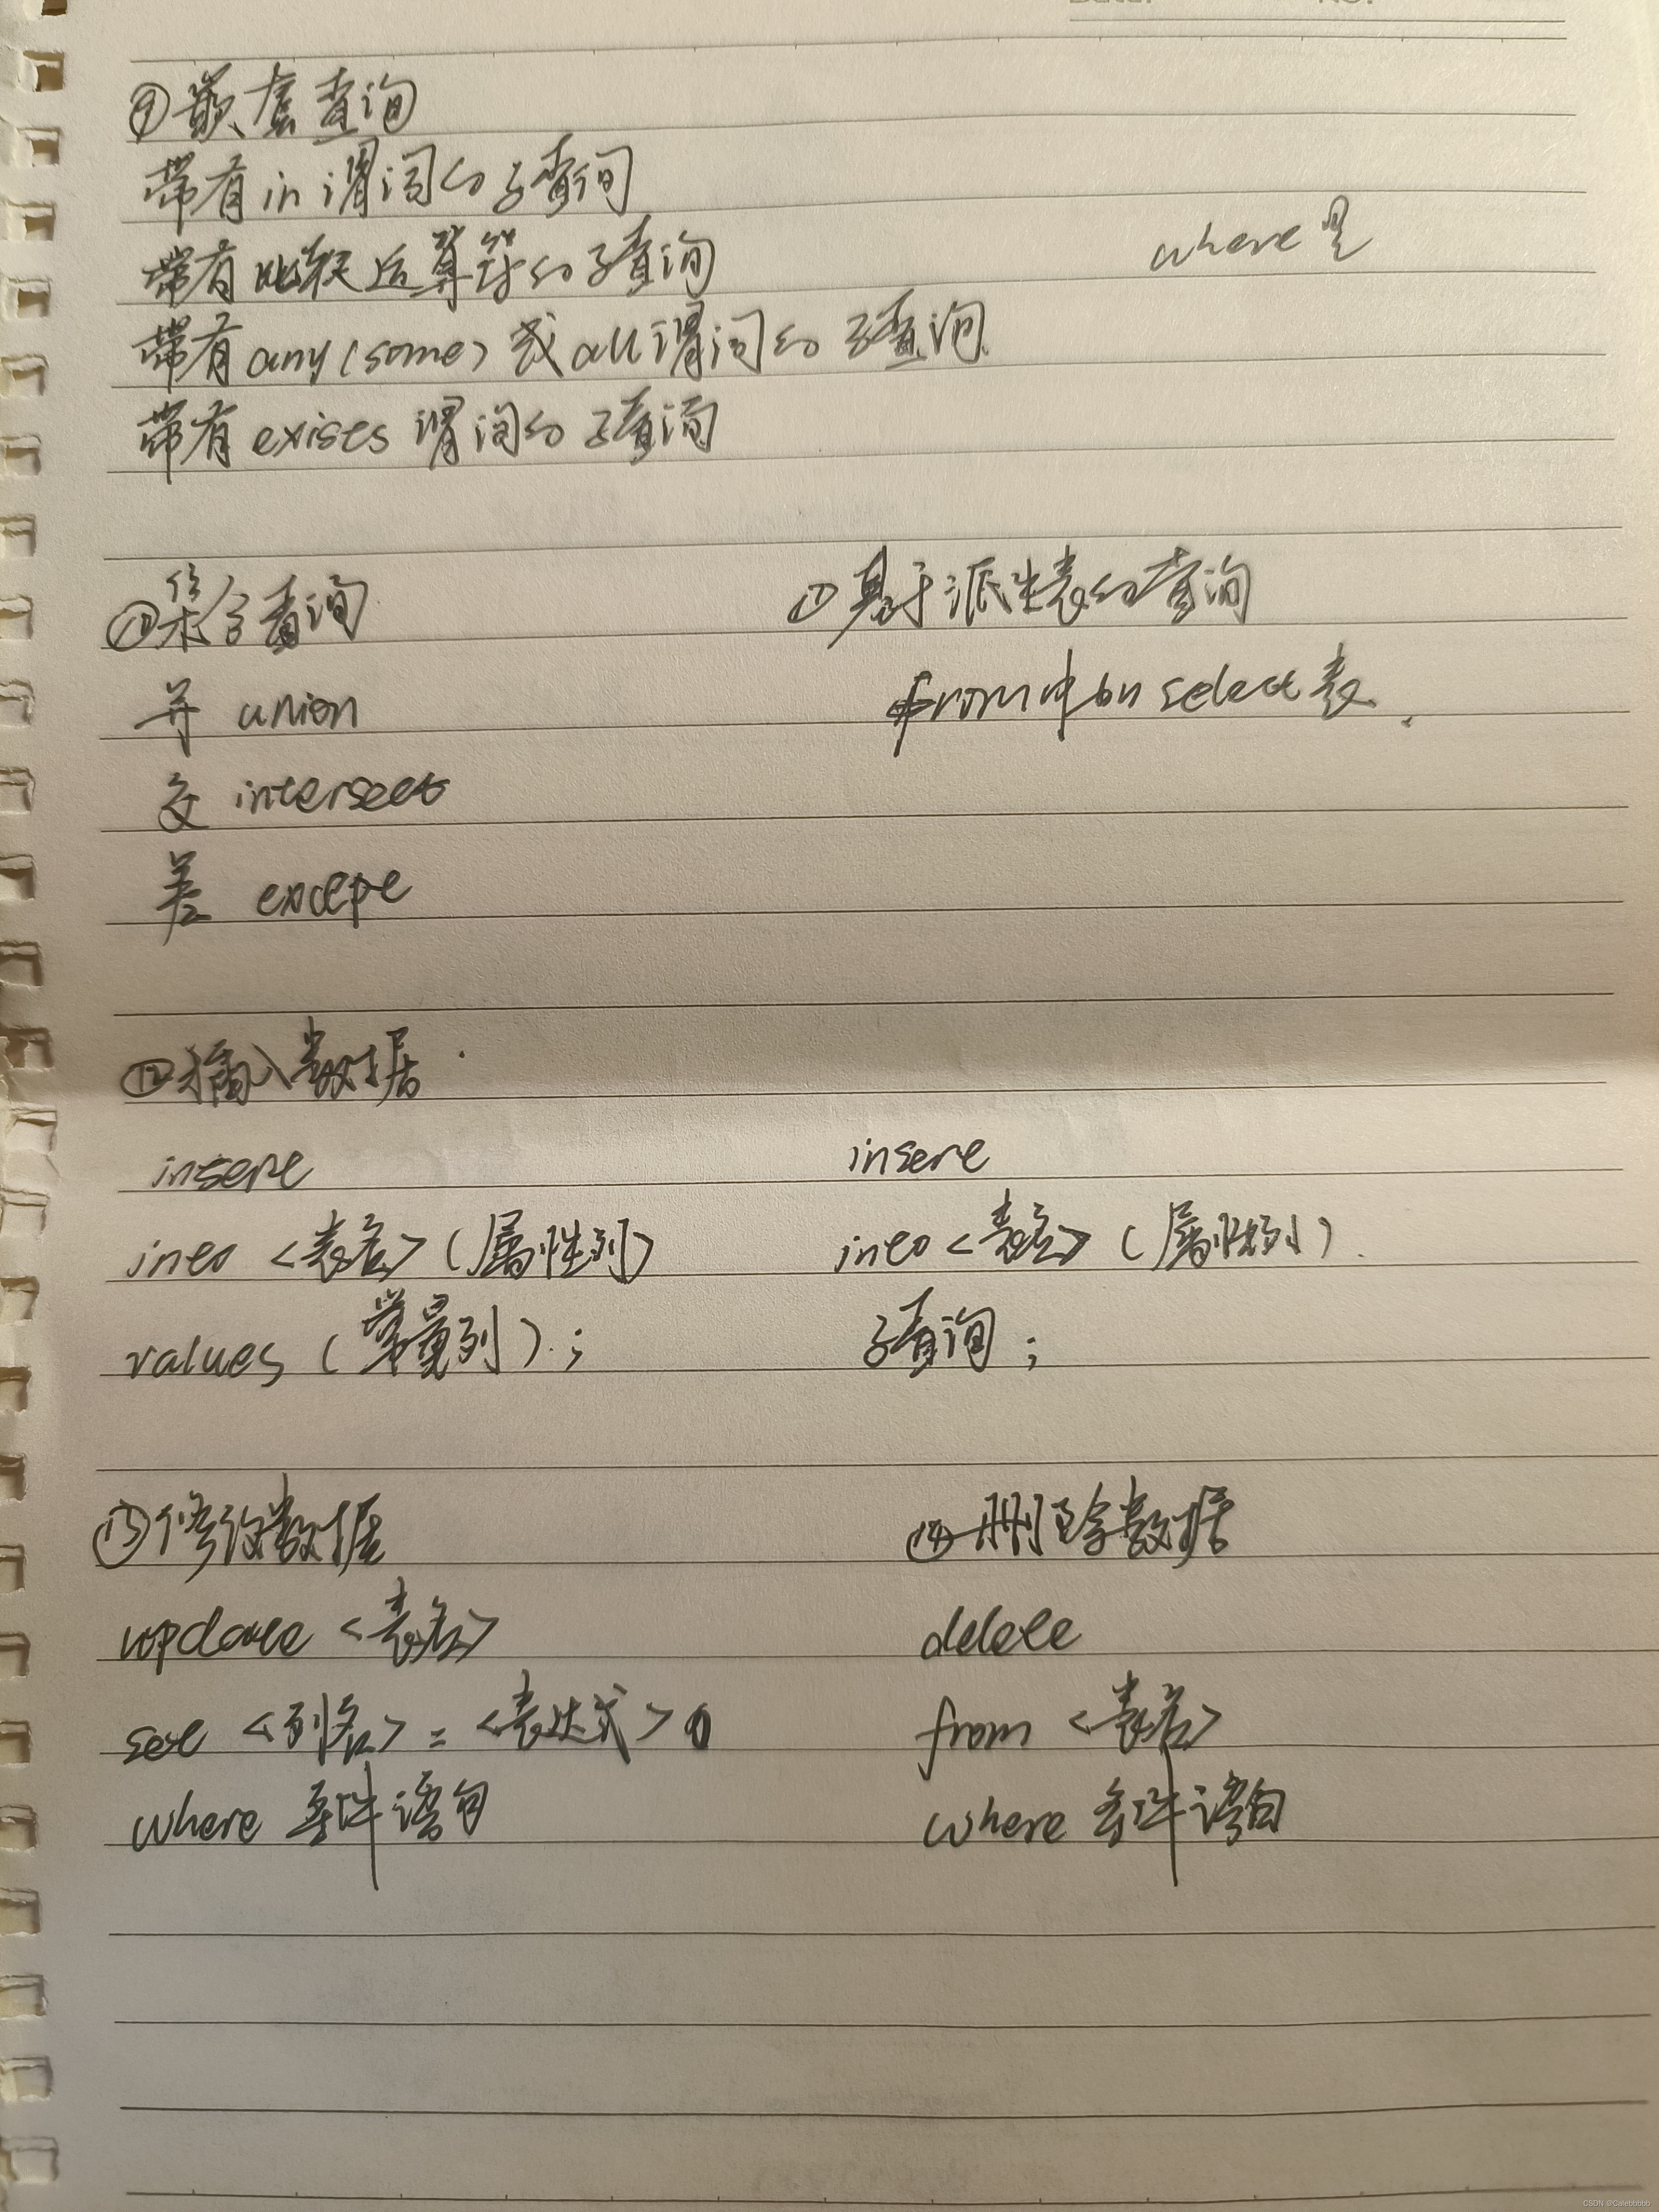 Date: No.
⑨嵌套查询
带有in谓词的子查询
带有比较运算符的子查询
where
带有any(some)或all谓词的子查询
带有exists谓词的子查询
⑩集合查询
并 union
交 intersect
差 except
⑪基于派生表的查询
from中 select表.
⑫插入数据
insert
into <表名>(属性列)
values (常量列);
insert
into<表名>(属性列).
子查询;
⑬修改数据
update <表名>
set <列名> = <表达式>
where 条件语句
⑭删除数据
delete
from <表名>
where 条件语句
CSDN @Calebbbbb